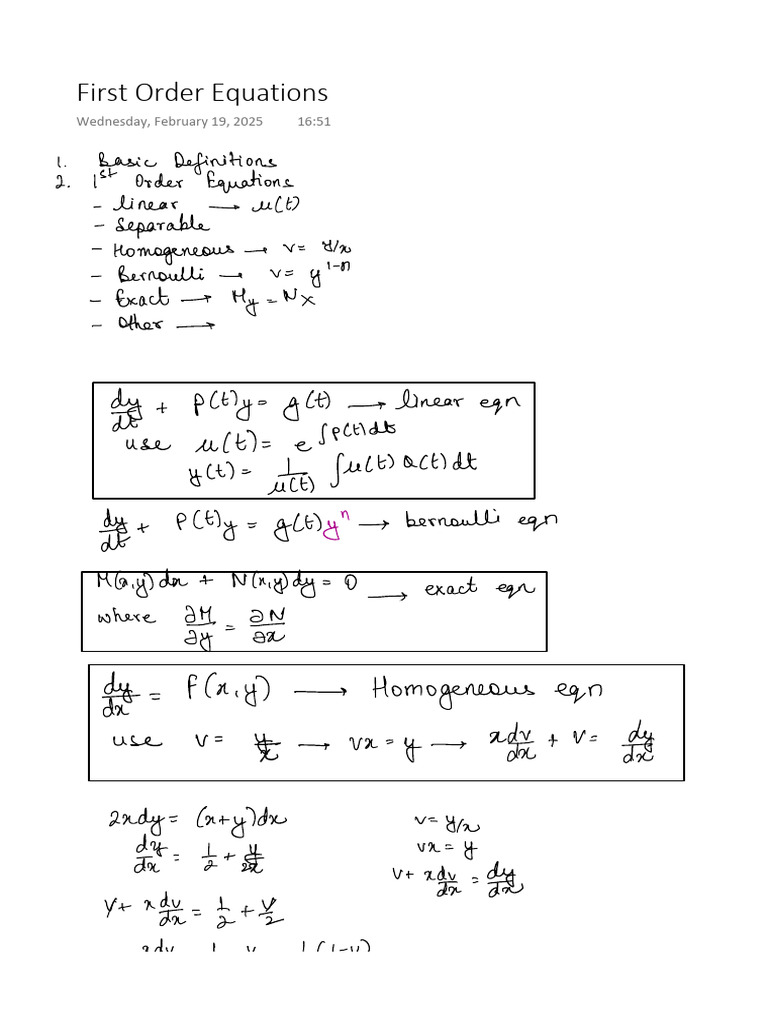 First Order Equations
Wednesday, February 19, 2025 16:51
1. Basic Definitions
2. 1st Order Equations
- linear → μ(t)
- Separable
- Homogeneous → v = y/x
- Bernoulli → v = y^(1-n)
- Exact → My = Nx
- Other →
dy/dt + P(t)y = g(t) → linear eqn
use μ(t) = e^∫P(t)dt
y(t) = 1/μ(t) ∫μ(t) Q(t) dt
dy/dt + P(t)y = g(t)y^n → bernoulli eqn
M(x,y)dx + N(x,y)dy = 0 → exact eqn
where ∂M/∂y = ∂N/∂x
dy/dx = f(x,y) → Homogeneous eqn
use v = y/x → vx = y → x dv/dx + v = dy/dx
2xdy = (x+y)dx
dy/dx = 1/2 + y/2x
v + x dv/dx = 1/2 + v/2
v = y/x
vx = y
v + x dv/dx = dy/dx